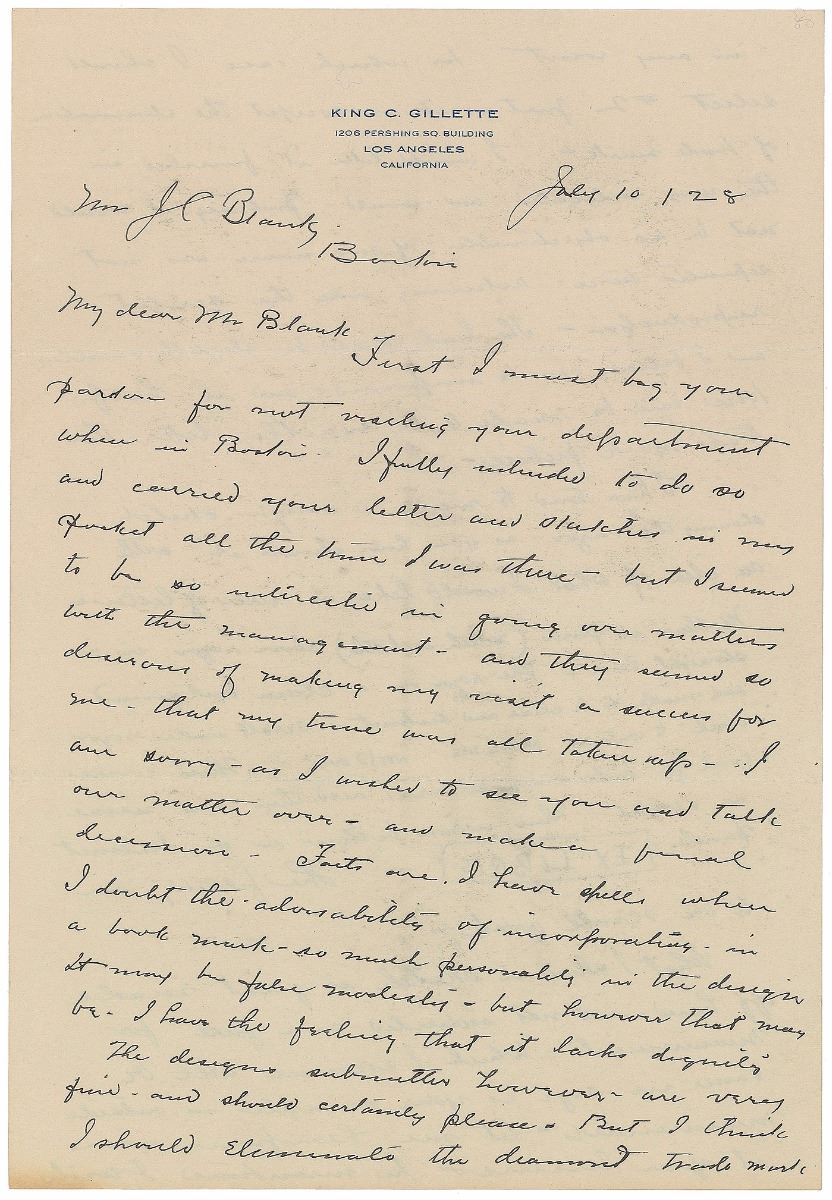 KING C. GILLETTE
1206 PERSHING SQ. BUILDING
LOS ANGELES
CALIFORNIA
July 10 / 28
Mr J C Blank,
Boston
My dear Mr Blank
First I must beg your
pardon for not visiting your department
when in Boston. I fully intended to do so
and carried your letter and sketches in my
pocket all the time I was there - but I seemed
to be so interested in going over matters
with the management - and they seemed so
desirous of making my visit a success for
me - that my time was all taken up - I
am sorry - as I wished to see you and talk
our matter over - and make a final
decission - Facts are, I have spells when
I doubt the advisability of incorporating in
a book mark - so much personality in the design
It may be false modesty - but however that may
be - I have the feeling that it lacks dignity
The designs submitted however - are very
fine - and should certainly please - But I think
I should eleminate the diamond trade mark